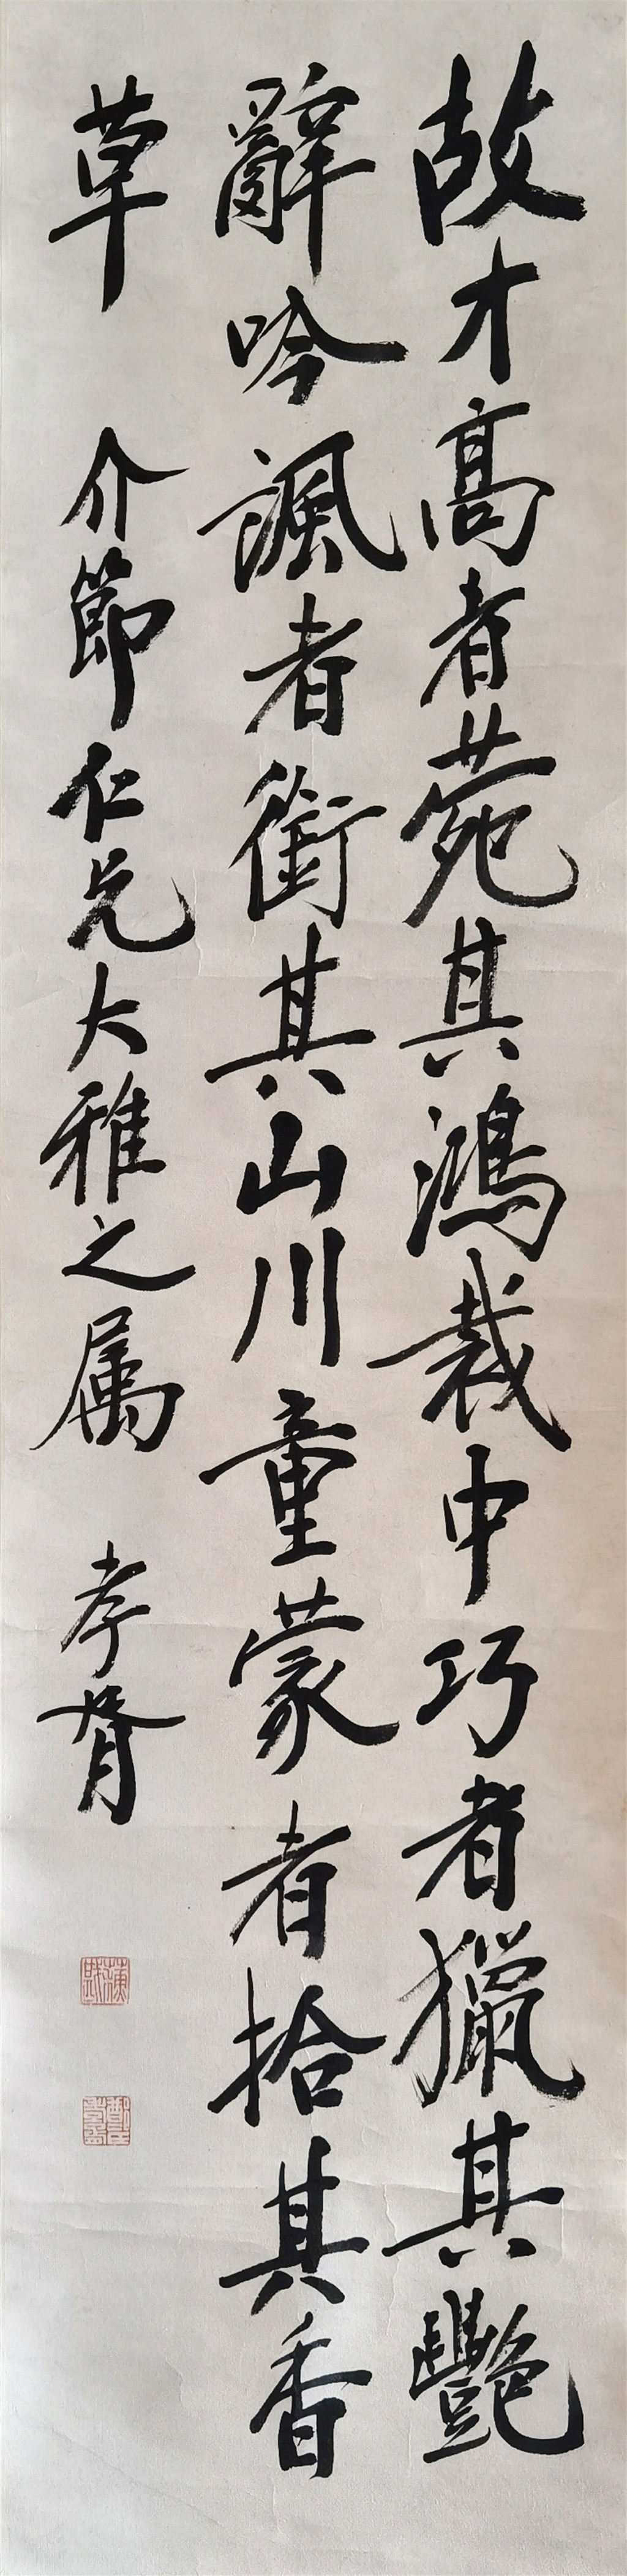 故才高者菀其鴻裁中巧者獵其艷
辭吟諷者銜其山川童蒙者拾其香
草 介節仁兄大雅之属 孝胥